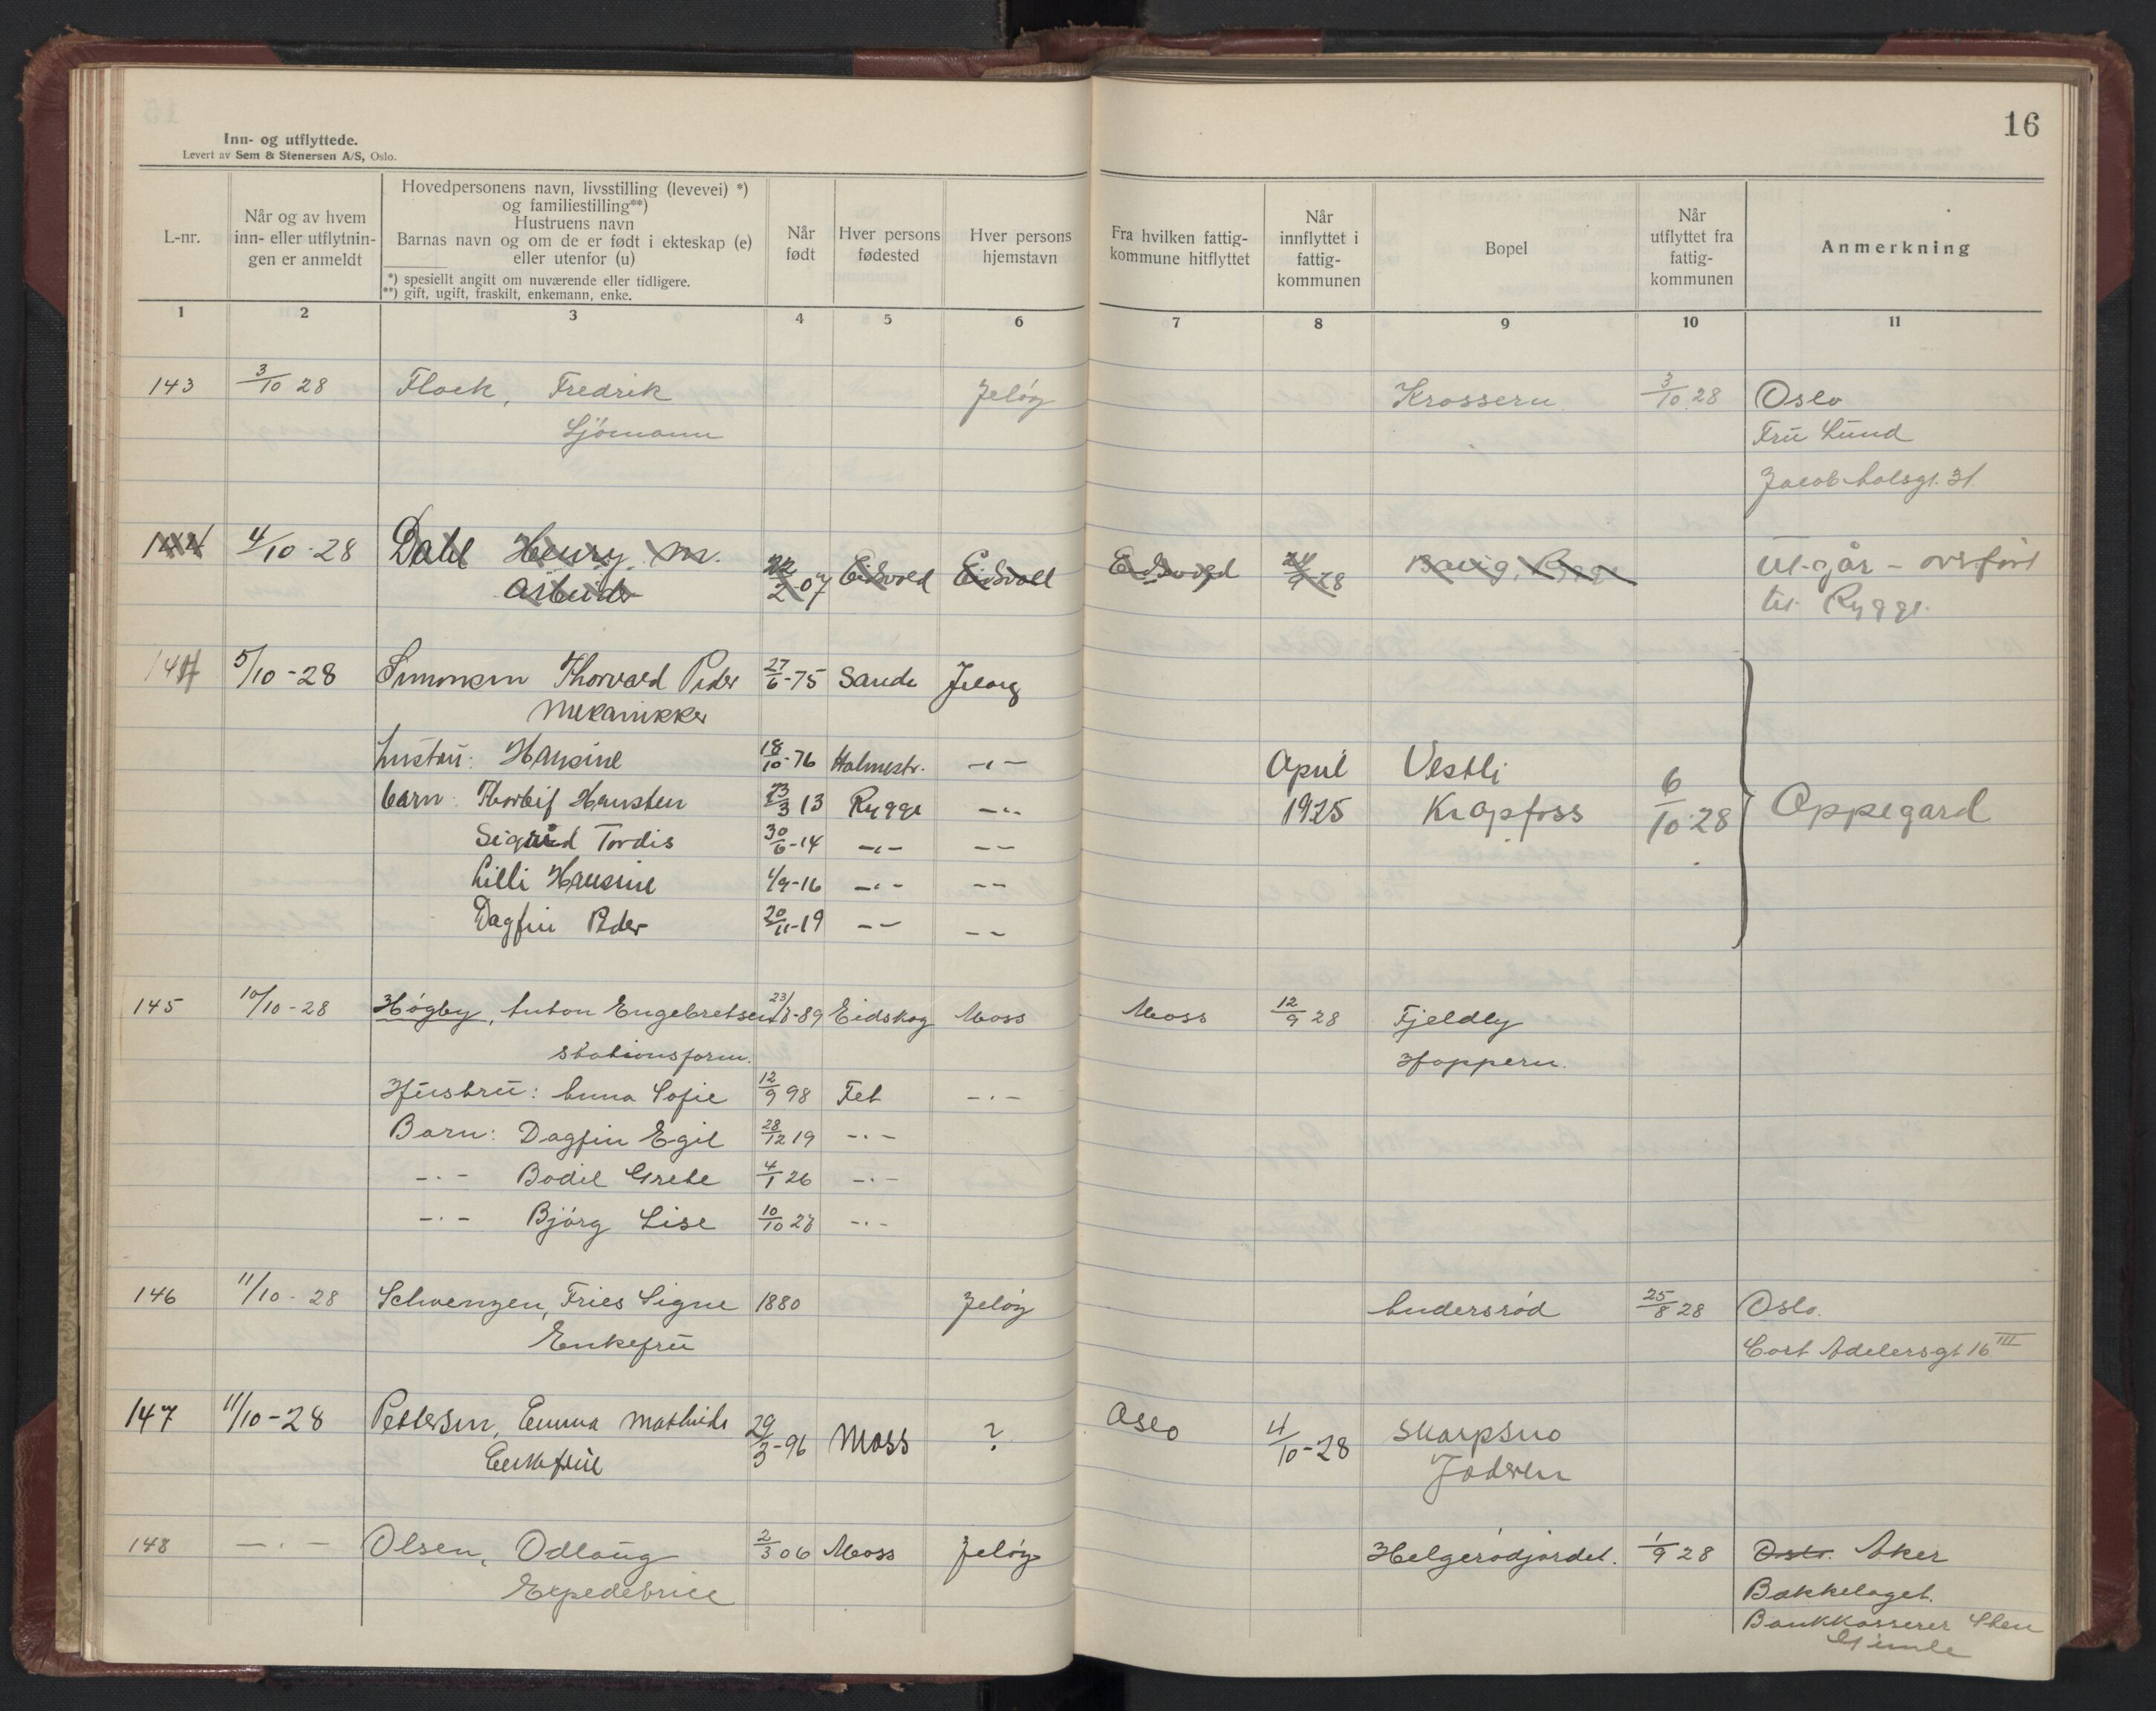 16
Inn- og utflyttede.
Levert av Sem & Stenersen A/S, Oslo.
L-nr.
Når og av hvem
inn- eller utflytnin-
gen er anmeldt
Hovedpersonens navn, livsstilling (levevei) *)
og familiestilling**)
Hustruens navn
Barnas navn og om de er født i ekteskap (e)
eller utenfor (u)
*) spesiellt angitt om nuværende eller tidligere.
**) gift, ugift, fraskilt, enkemann, enke.
Når
født
Hver persons
fødested
Hver persons
hjemstavn
Fra hvilken fattig-
kommune hitflyttet
Når
innflyttet i
fattig-
kommunen
Bopel
Når
utflyttet fra
fattig-
kommunen
Anmerkning
1 2 3 4 5 6 7 8 9 10 11
143 3/10 28 Flock, Fredrik Jeløy Krossern 3/10 28 Oslo
Sjömann Fru Lund
Jacob Aalsgt. 31
144 4/10-28 Dahl Henry M. 22/2 07 Eidsvold Eidsvoll Eidsvold 24/9 28 Rygge Utgår - overført
Arbeider til Rygge.
144 5/10-28 Simonsen Thorvald Peder 27/6-75 Sande Jeløy
Mekanikker
hustru: Hansine 18/10-76 Holmestr. -"- April Vestli
barn: Thorleif Hansten 23/3 13 Rygge -"- 1925 Krapfoss 6/10-28 Oppegard
Sigrid Tordis 30/6-14 -"- -"-
Lilli Hansine 4/9-16 -"- -"-
Dagfin Peder 20/11-19 -"- -"-
145 10/10-28 Høgby, Anton Engebretsen 23/8-89 Eidskog Moss Moss 12/9 28 Fjeldly
stationsform. Hoppern.
Hustru: Anna Sofie 12/9 98 Fet -"-
Barn: Dagfin Egil 28/12 19 -"-
-"- Bodil Grete 4/1 26 -"-
-"- Björg Lise 10/10 27 -"-
146 11/10-28 Schwenzen, Fries Signe 1880 Jeløy Andersröd 25/8 28 Oslo.
Enkefru Cort Adelersgt 16 III
147 11/10-28 Pettersen, Emma Mathilde 29/3-96 Moss ? Oslo 4/10-28 Skarpsno
Enkefrue Jøderen
148 -"- Olsen, Odlaug 2/3 06 Moss Jeløy Helgerödjordet. 1/9 28 Oslo. Aker
Expedetrice Bækkelaget.
Bankkasserer Sten
Gimle